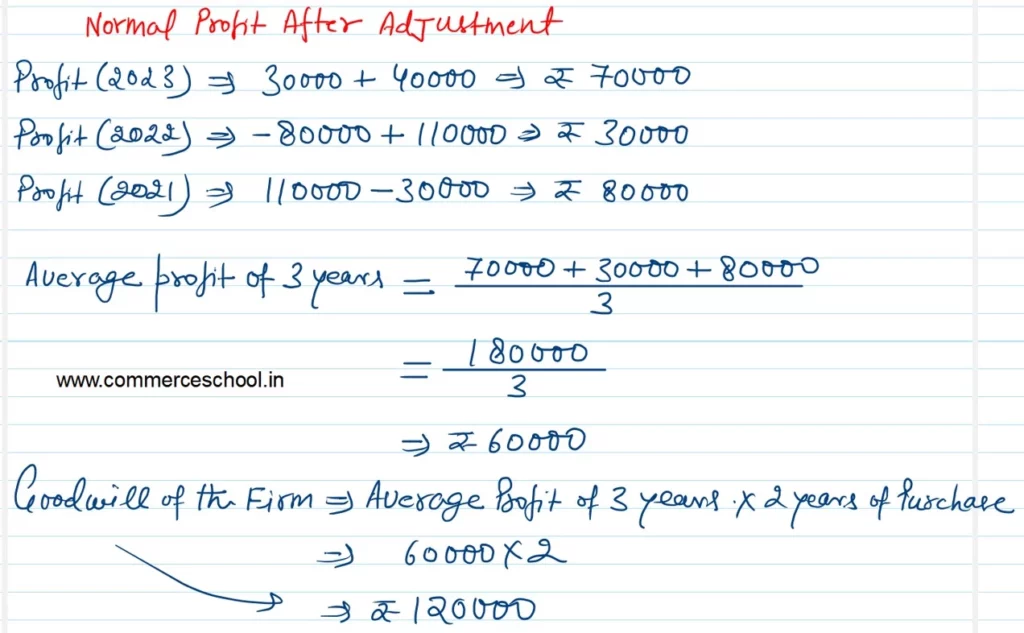 Normal Profit After Adjustment
Profit (2023) ⇒ 30000 + 40000 ⇒ ₹ 70000
Profit (2022) ⇒ -80000 + 110000 ⇒ ₹ 30000
Profit (2021) ⇒ 110000 - 30000 ⇒ ₹ 80000
Average profit of 3 years = 70000 + 30000 + 80000
3
= 180000
3
www.commerceschool.in
⇒ ₹ 60000
Goodwill of the Firm ⇒ Average Profit of 3 years × 2 years of Purchase
⇒ 60000 × 2
⇒ ₹ 120000